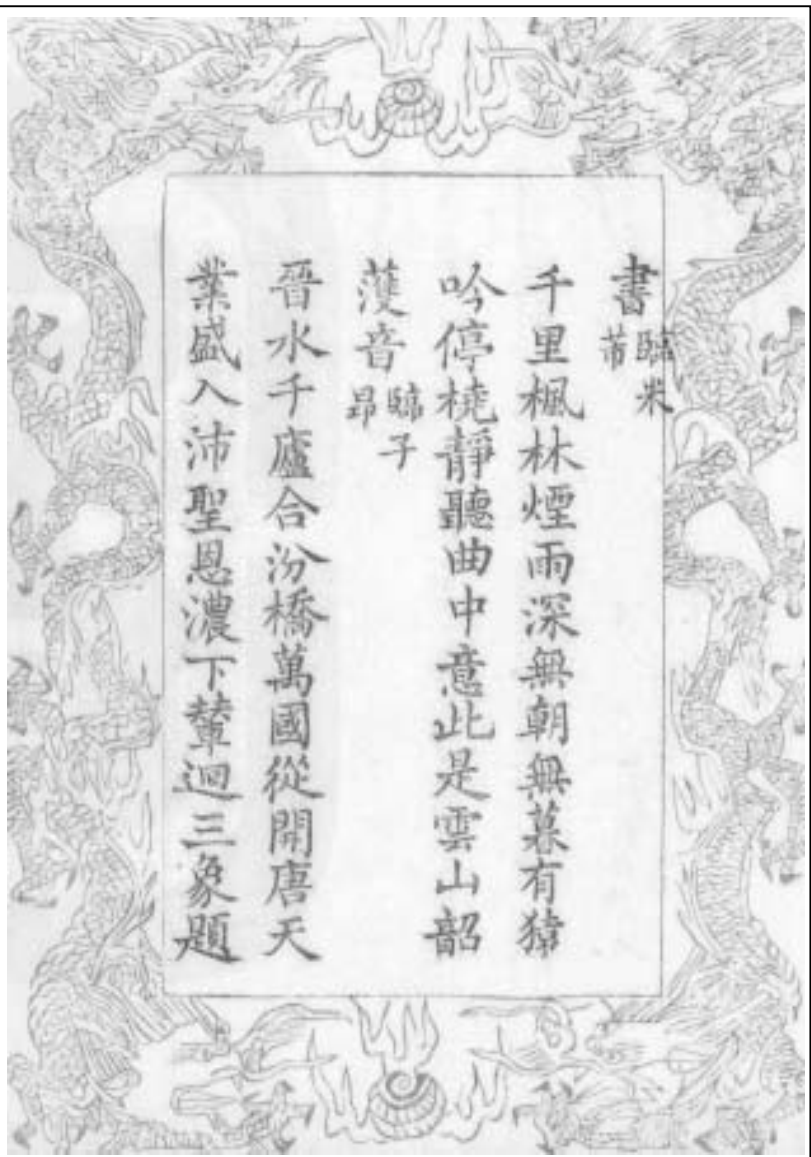 書 臨米芾
千里楓林煙雨深無朝無暮有猿
吟停橈靜聽曲中意此是雲山韶
濩音 臨子昂
晉水千廬合汾橋萬國從開唐天
業盛入沛聖恩濃下輦迴三象題